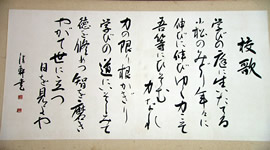 校歌
学びの庭に生ひたてる
小松のみどり年々に
伸びに伸びゆく力こそ
吾等にひそむ力なれ
力の限り根かぎり
学びの道にいそしみて
徳を修め智を磨き
やがて世に立つ
日を見んや
書